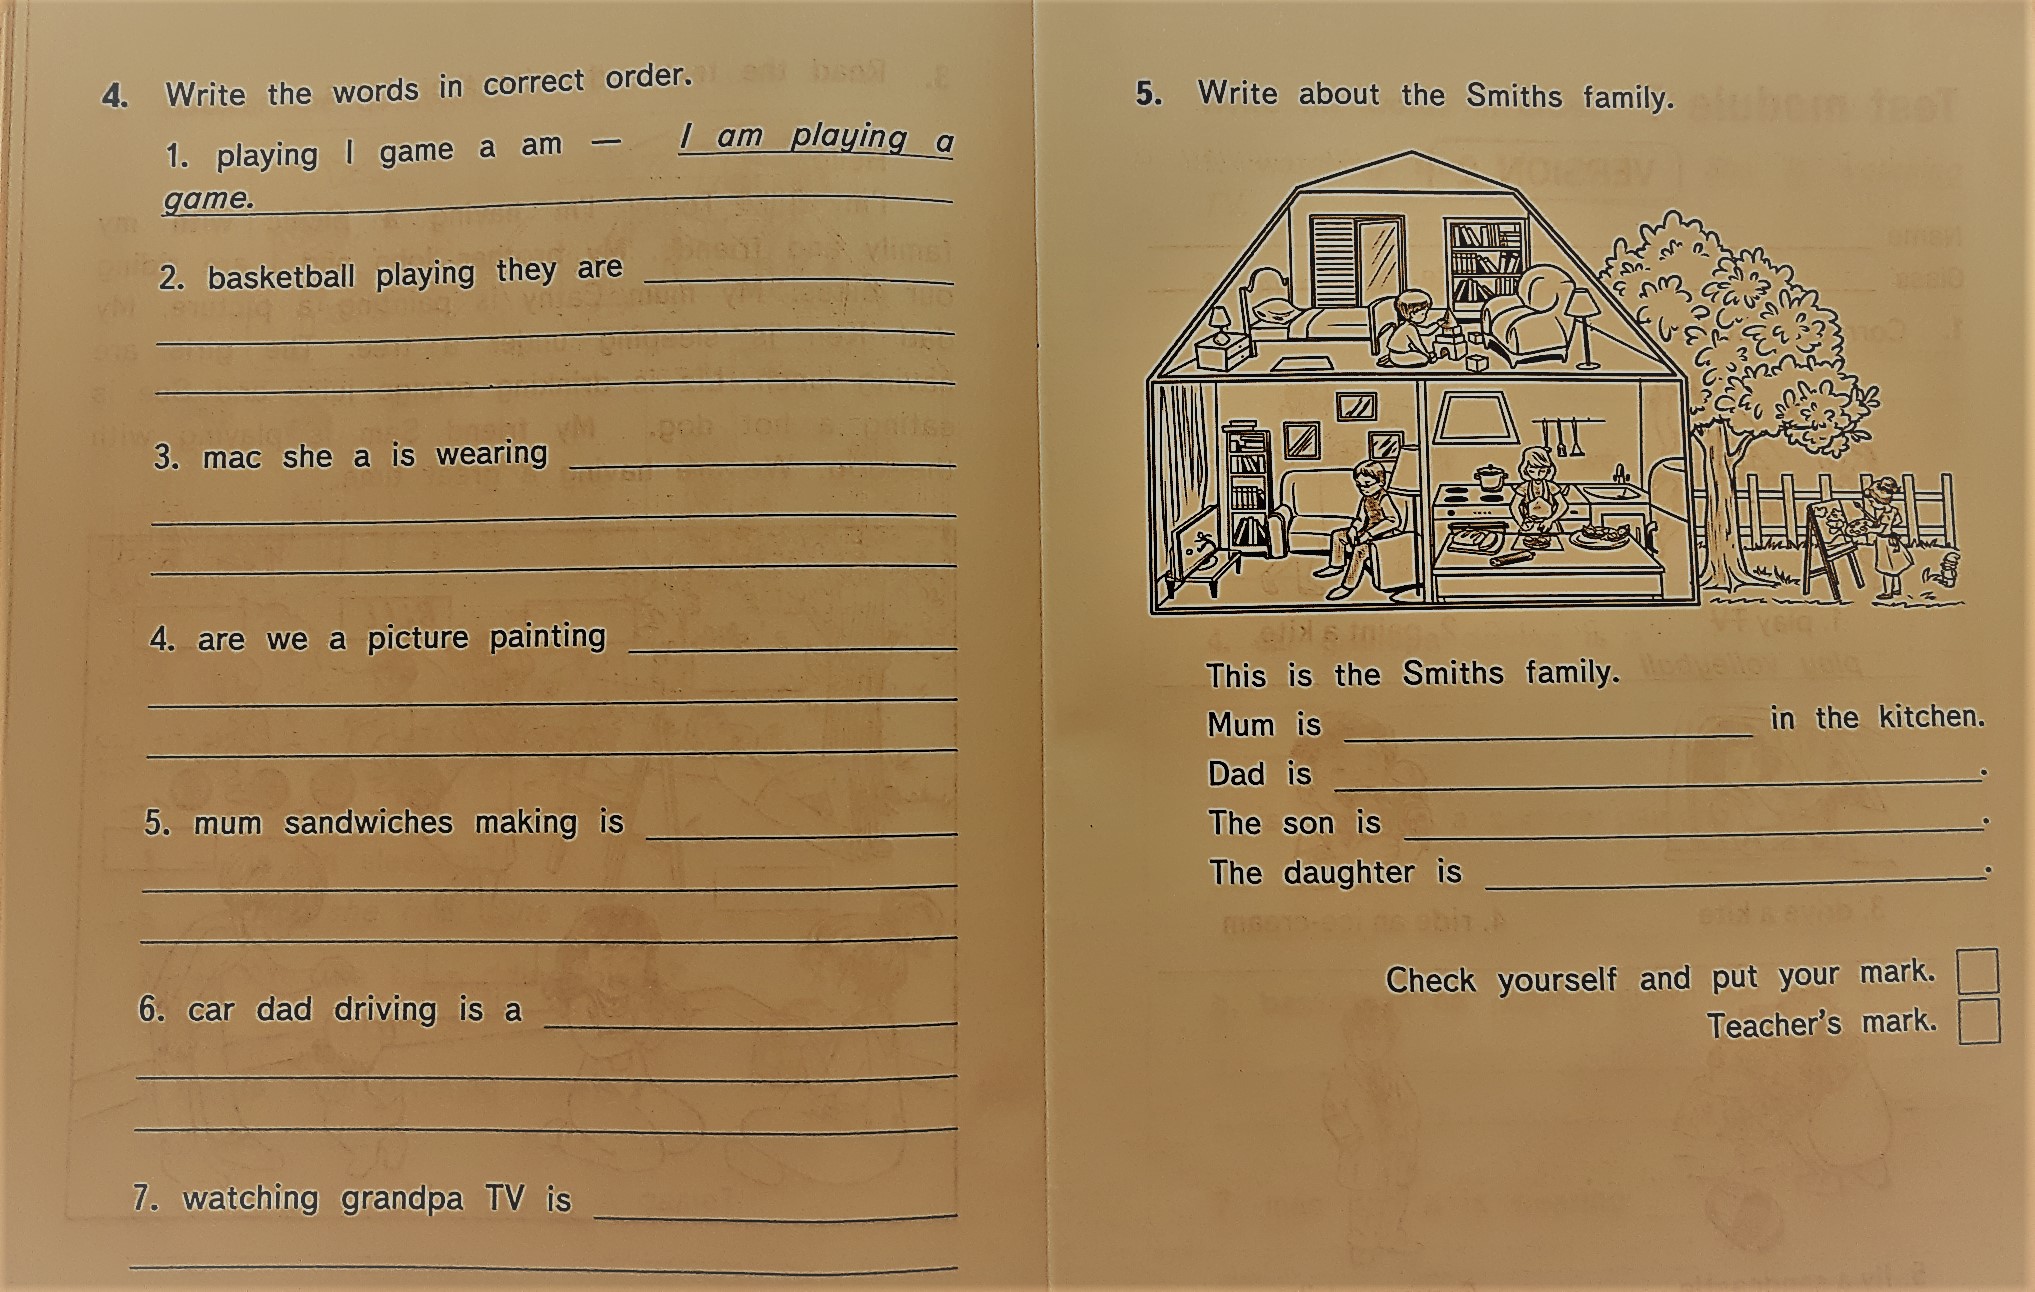 4. Write the words in correct order.
1. playing I game a am — I am playing a
game.
2. basketball playing they are
3. mac she a is wearing
4. are we a picture painting
5. mum sandwiches making is
6. car dad driving is a
7. watching grandpa TV is
5. Write about the Smiths family.
This is the Smiths family.
Mum is ____ in the kitchen.
Dad is ____.
The son is ____.
The daughter is ____.
Check yourself and put your mark.
Teacher's mark.